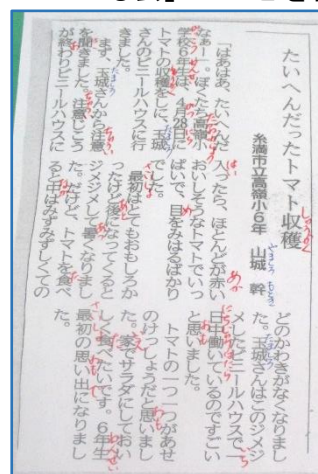 たいへんだったトマト収穫
糸満市立高嶺小6年　山城　幹
「はあはあ、たいへんだ
なぁー」。ぼくたち高嶺小
学校6年生は、4月29日に
トマトの収穫をしに、玉城
さんのビニールハウスに行
きました。
まず、玉城さんから注意
を聞きました。注意じこう
が終わりビニールハウスに
入ったら、ほとんどが赤い
おいしそうなトマトでいっ
ぱいで、目をみはるばかり
でした。
最初はとてもおもしろか
ったけど後になってくると
ジメジメして暑くなりまし
た。だけど、トマトを食べ
ると中はみずみずしくての
どのかわきがなくなりまし
た。玉城さんはこのジメジ
メしたビニールハウスで一
日中働いているのですごい
と思いました。
トマトの一つ一つがあせ
のけっしょうだと思いまし
た。家でサラダにしておい
しく食べたいです。6年生
最初の思い出になりまし
た。